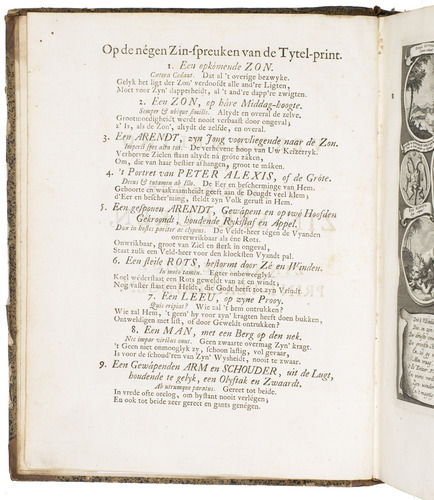 Op de négen Zin-spreuken van de Tytel-print.
1. Een opkómende ZON.
Cætera Cedant. Dat al 't overige bezwyke.
Gelyk het ligt der Zon' verdooft alle and're Ligten,
Moet voor Zyn' dapperheidt, al 't and're dapp're zwigten.
2. Een ZON, op háre Middag-hoogte.
Semper & ubique similis. Altydt en overal de zelve.
Grootmoedigheidt wordt nooit verbaast door ongeval;
z' Is, als de Zon', altydt de zelfde, en overal.
3. Een ARENDT, zyn Jong voorvliegende naar de Zon.
De verhévene hoop van Uw Keizerryk.
Verhevene Zielen staan altydt ná gróte záken,
Om, die van haar bestier afhangen, groot te máken.
4. 't Portret van PETER ALEXIS, of de Gróte.
Decus & tutamen ab Illo. De Eer en bescherminge van Hem.
Geboorte en wáakzaamheidt geeft aan de Deugdt veel klem;
d'Eer en bescherming, steldt zyn Volk gerust in Hem.
5. Een gespónen ARENDT, Gewápent en op twé Hoofden
Gekroondt, houdende Rykstaf en Appel.
Dux in hostes pariter ac clypeus. De Veldt-heer tégen de Vyanden
onverwrikbaar als éne Rots.
Onwrikbaar, groot van Ziel en sterk in ongeval,
Staat zulk een Veldt-heer voor den kloeksten Vyandt pal.
6. Een steile ROTS, bestormt door Zé en Winden.
In motu tamen. Egter onbeweeglyk.
Koel wéderstaat een Rots geweldt van zé en windt;
Nog vaster staat een Heldt, die Godt heeft tot zyn Vrindt.
7. Een LEEU, op zyne Prooy.
Quis eripiat? Wie zal 't hem ontrukken?
Wie zal Hem, 't geen' hy voor zyn' kragten heeft doen bukken,
Ontweldigen met list, of door Geweldt ontrukken?
8. Een MAN, met een Berg op den nek.
Nec impar viribus onus. Geen zwaarte overmag Zyn' kragt.
't Geen niet eenmooglyk zy, schoon lastig, vol gevaar,
Is voor de schoud'ren van Zyn' Wysheidt, nooit te zwaar.
9. Een Gewápenden ARM en SCHOUDER, uit de Lugt,
houdende te gelyk, een Olyftak en Zwaardt.
Ab utrumque paratus. Gereet tot beide.
In vrede ofte oorlog, om bystant nooit verlégen;
En ook tot beide zeer gereet en gants genégen.